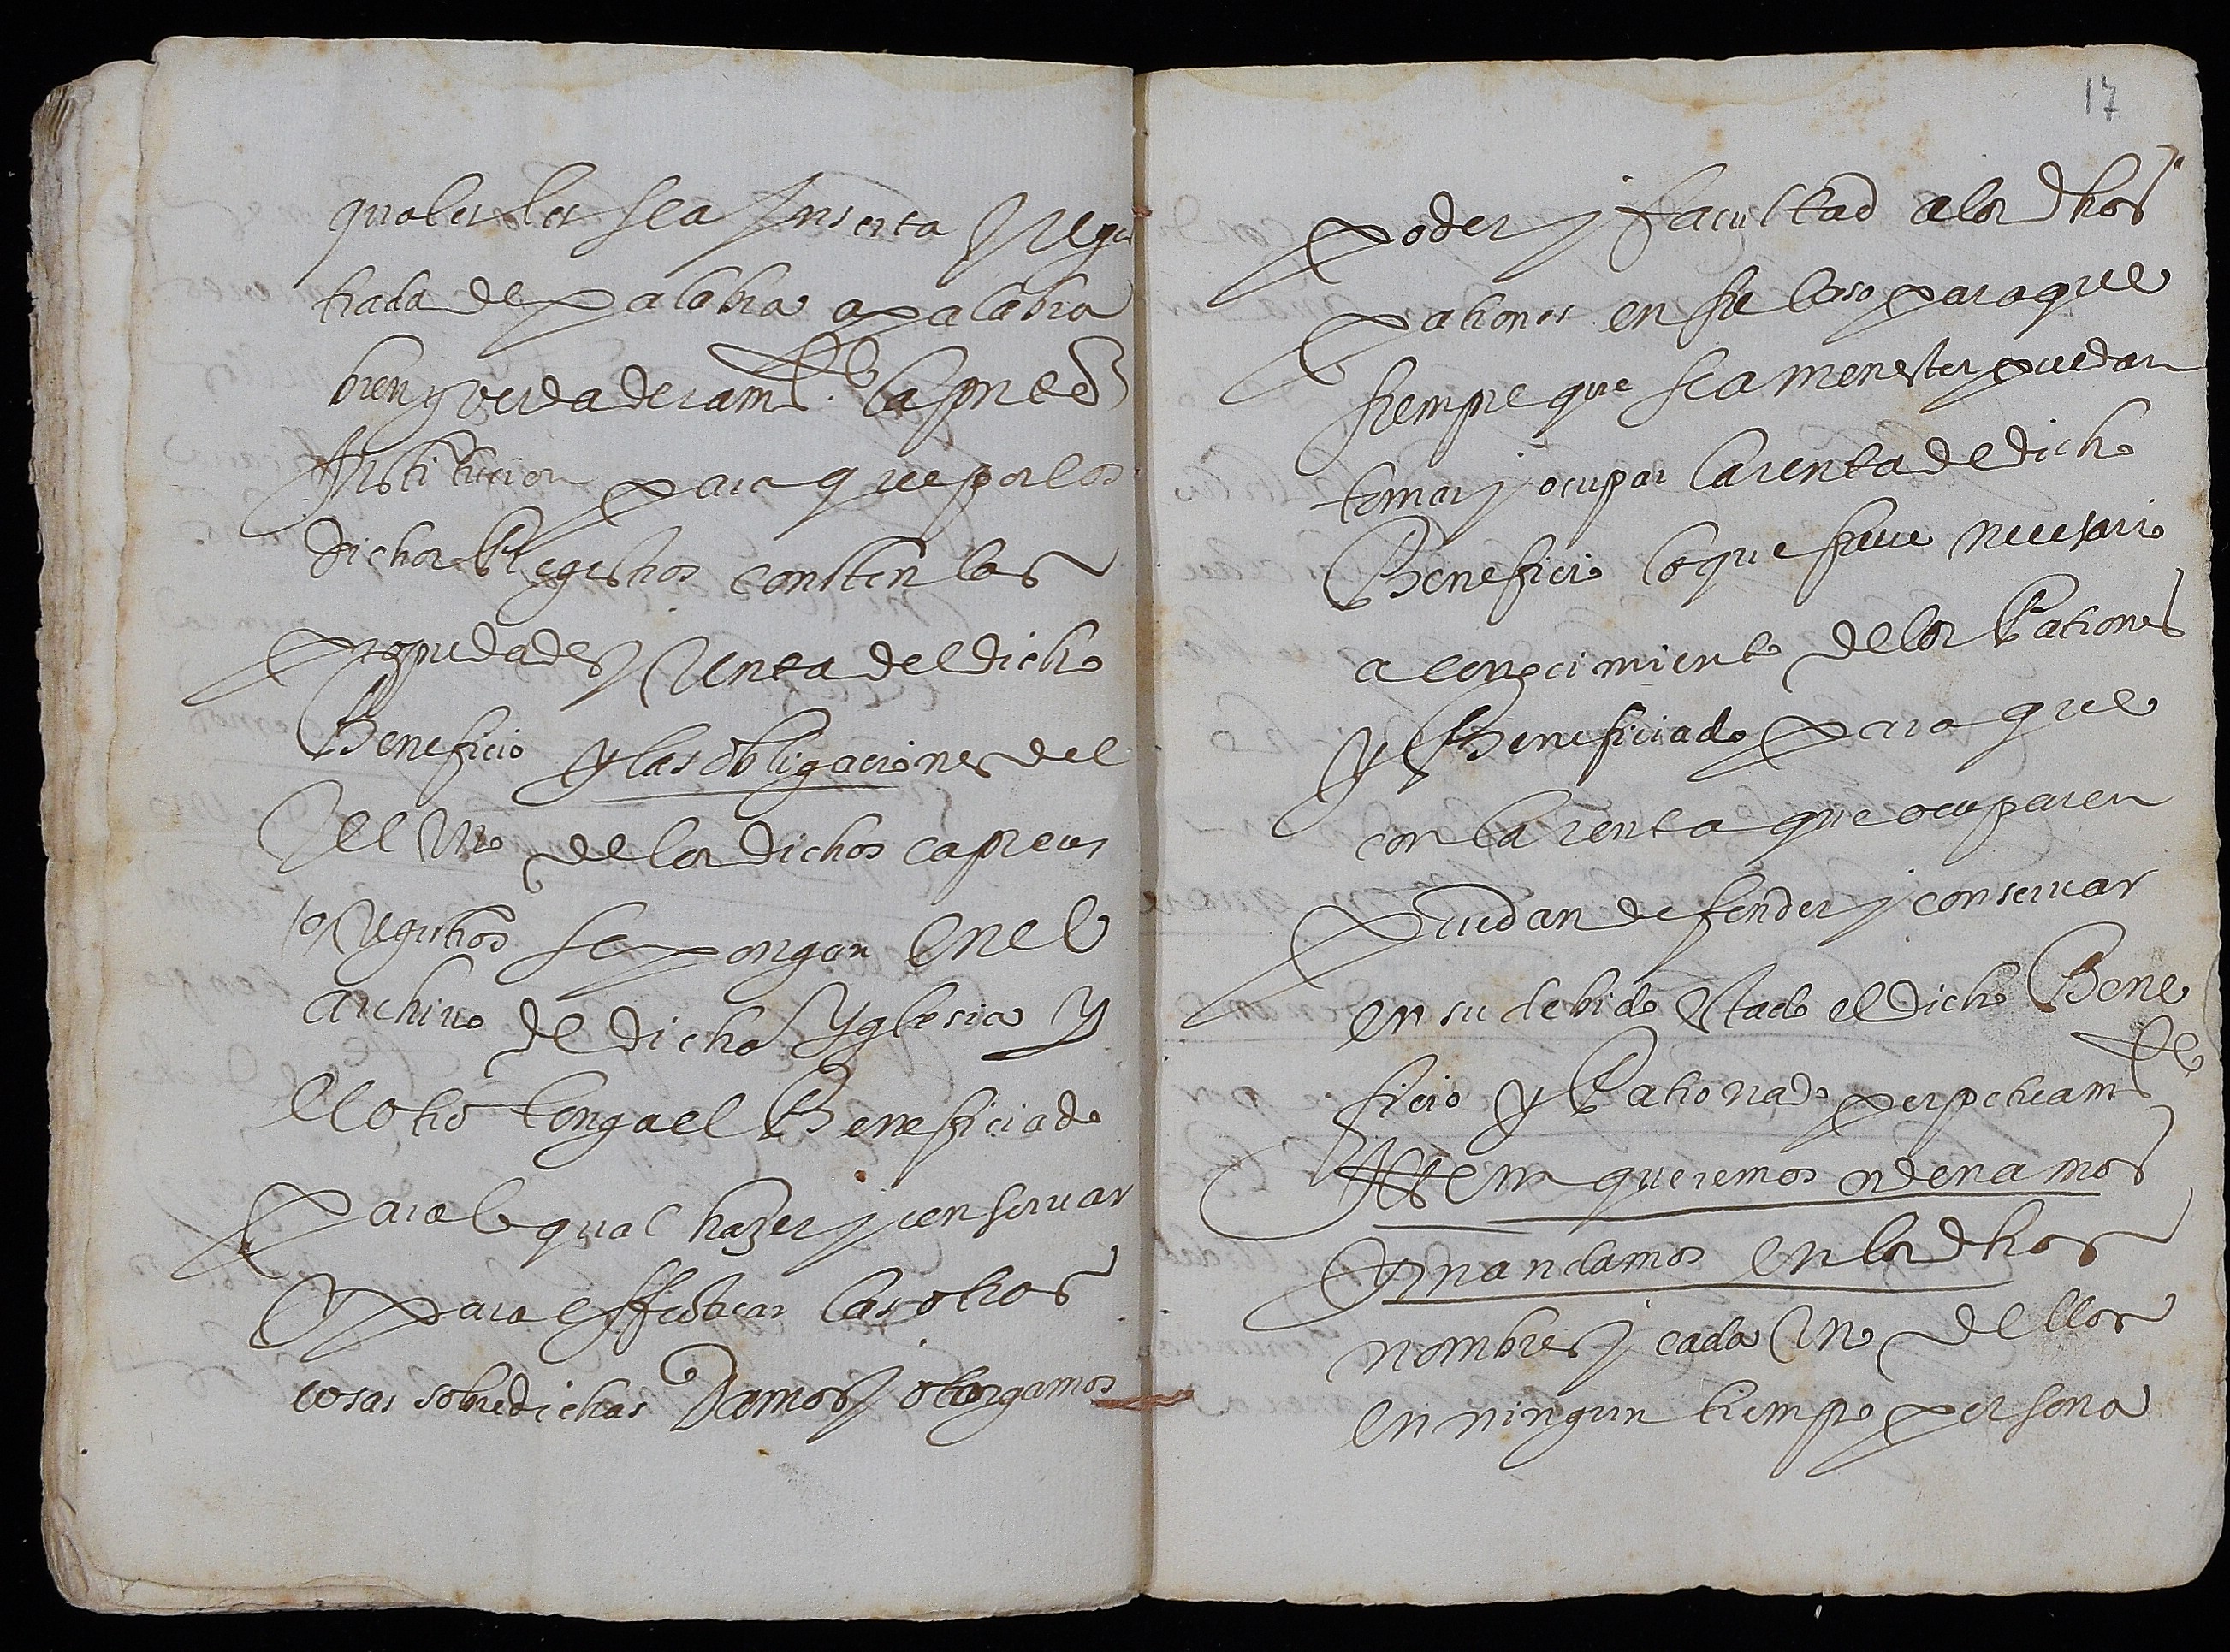 quales les sea Inserta y regis
trada de palabra a palabra
bien y verdaderamte. la preste
Institucion para que por los
dichos Registros consten las
propiedades y renta del dicho
Beneficio y las obligaciones del
y el vno de los dichos
(o) registros se pongan en el
archiuo de dicha Yglesia y
el otro tenga el Beneficiado
para lo qual hazer y conseruar
y para effectuar las otras
cosas sobredichas Damos y otorgamos
17
poder y facultad a los dhos
patrones en su caso para que
siempre que sea menester puedan
tomar y ocupar la renta de dicho
Beneficio lo que fuere necesario
a conocimiento de los Patrones
y Beneficiado para que
con la renta que ocuparen
Puedan defender y conseruar
en su debido estado el dicho Bene
ficio y Patronado perpetuamte
Item queremos ordenamos
y mandamos en los dhos
nombres y cada vno dellos
en ningun tiempo persona